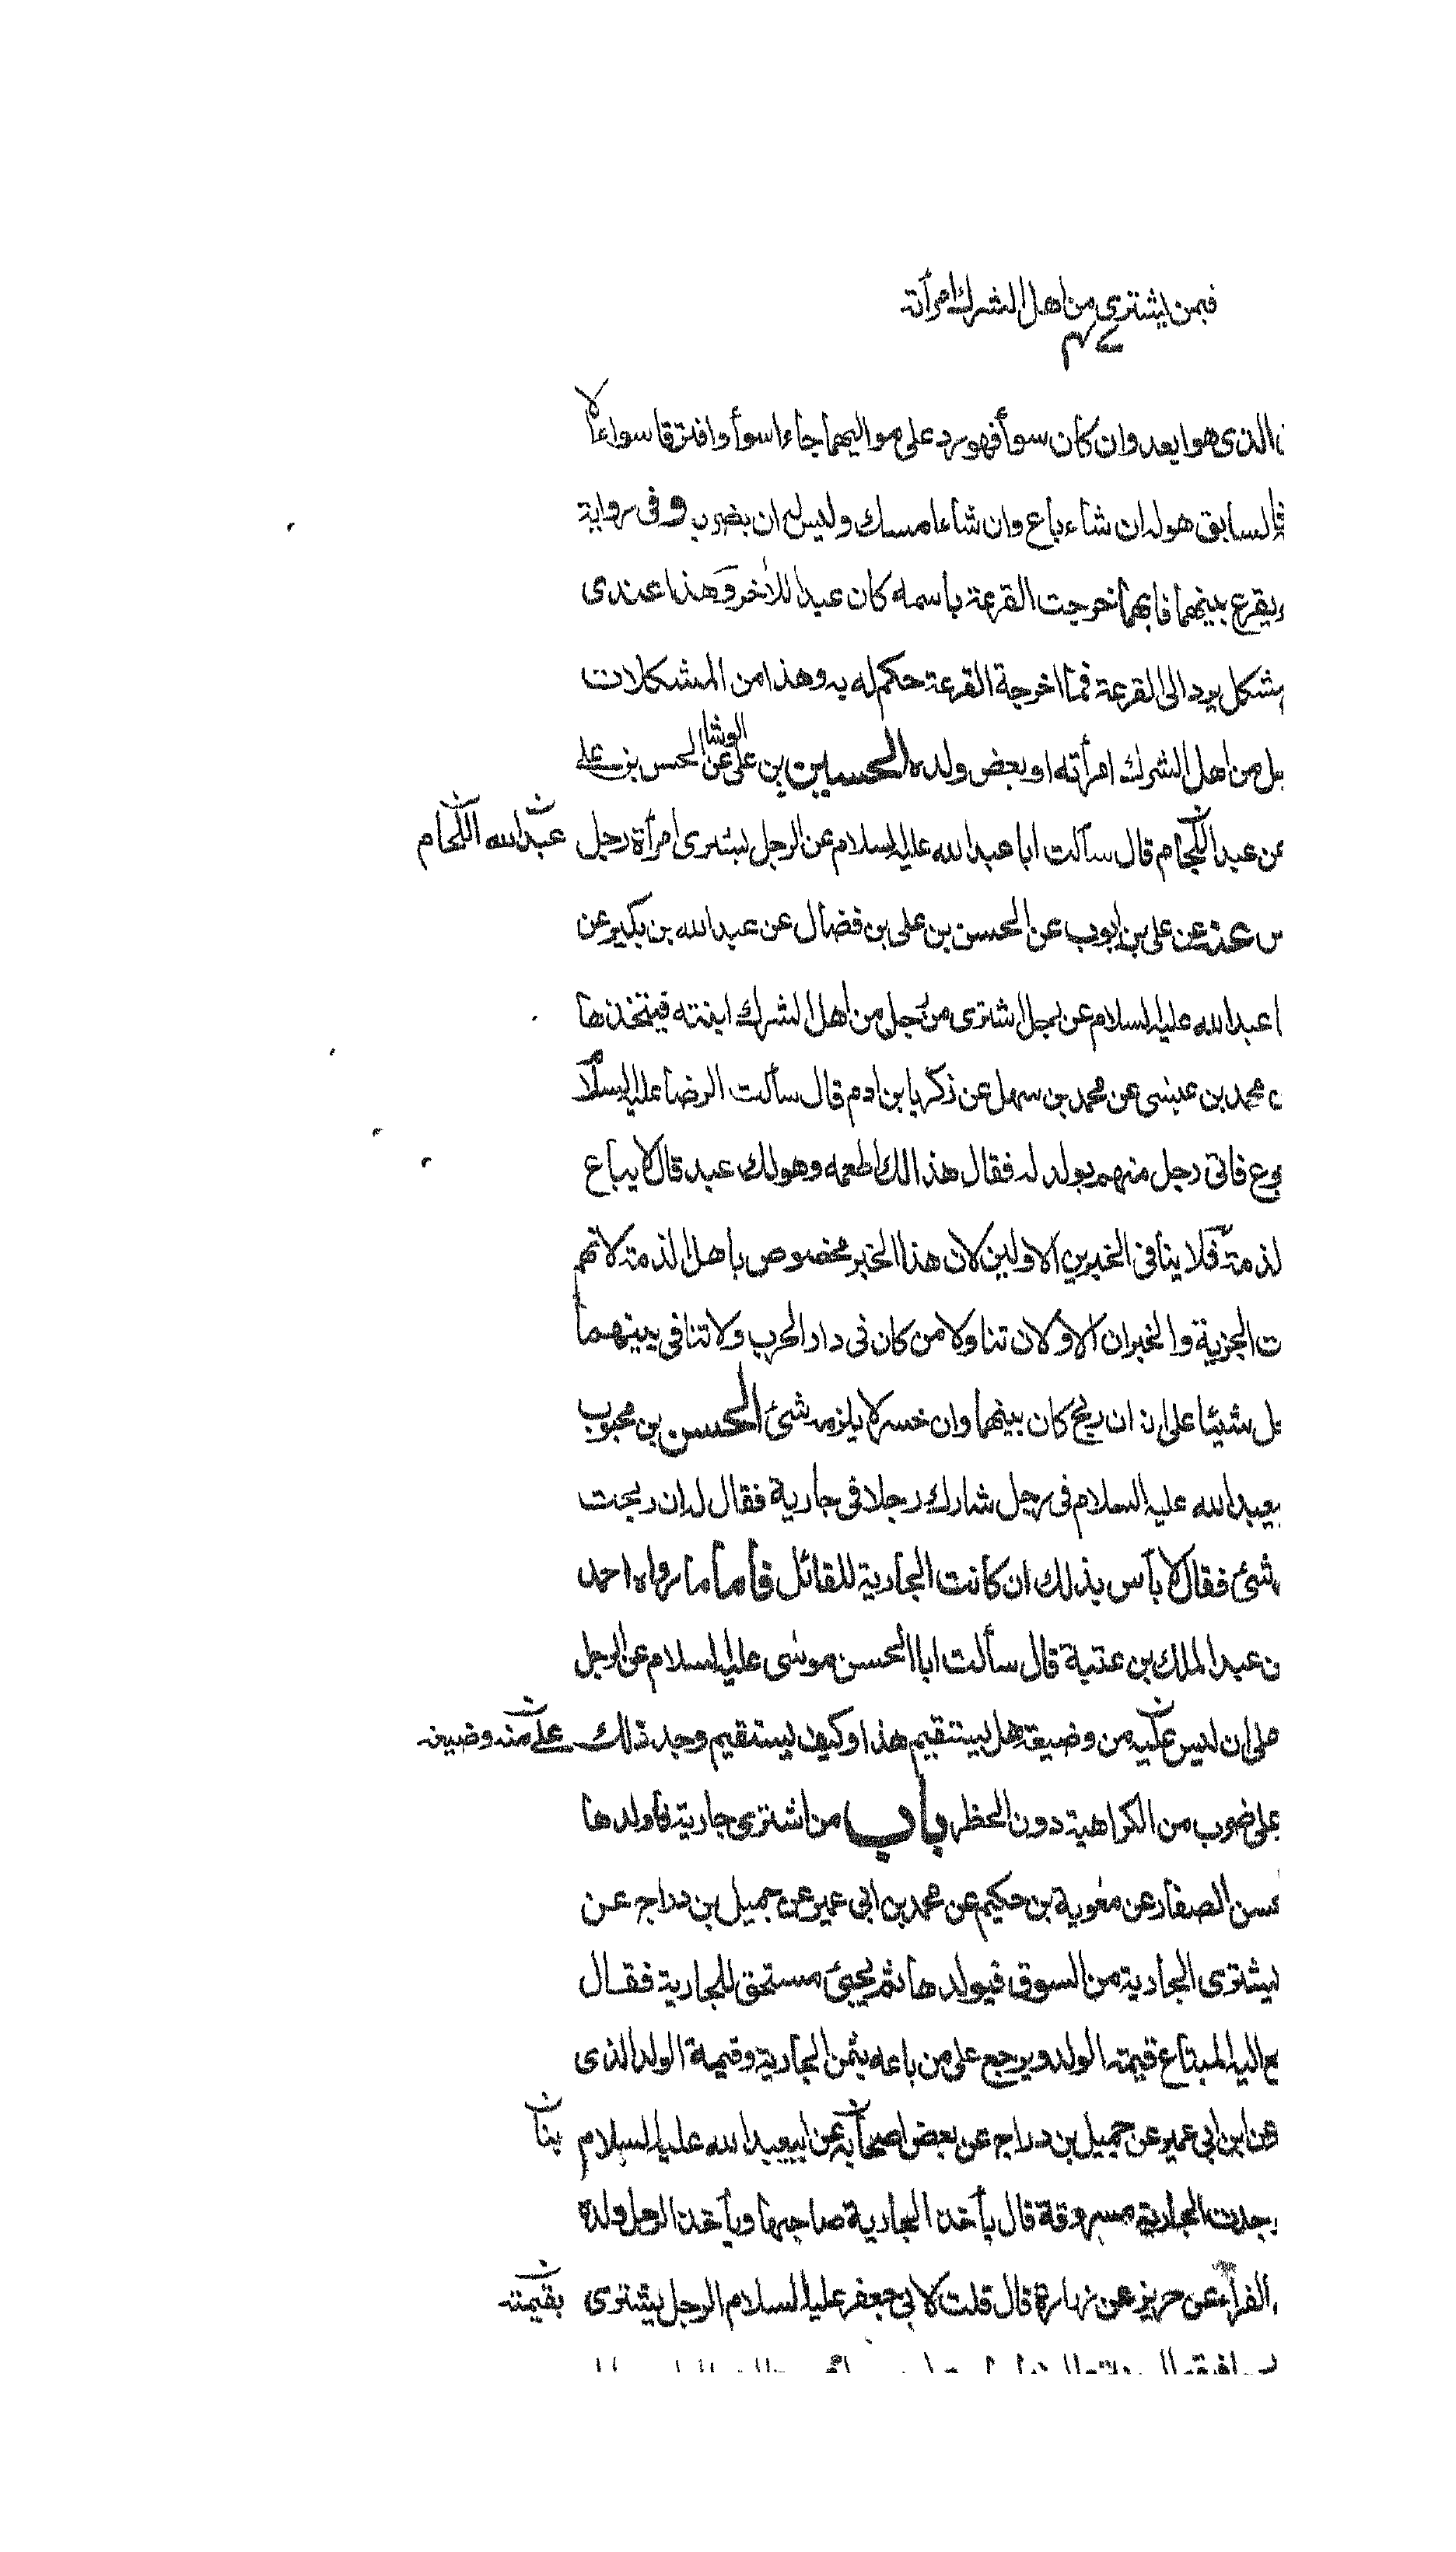 فيمن يشترى من اهل الشرك امرأته
الذى هو ابعد وان كان سوأ فهو رد على مواليهما جاءا سوأ وافترقا سواءا لا
السابق هو له ان شاء باع وان شاء امسك وليس له ان يضرب وفى رواية
يقرع بينهما فايهما خرجت القرعة باسمه كان عبدا للاخر وهذا عندى
مشكل يرد الى القرعة فما اخرجة القرعة حكم له به وهذا من المشكلات
من اهل الشرك امرأته او بعض ولده الحسين بن على عن الحسن بن على
الوشا
عن عبد اللحام قال سألت ابا عبد الله عليه السلام عن الرجل يشترى امرأة رجل
عبد الله اللحام
عنه عن على بن ايوب عن الحسن بن على بن فضال عن عبد الله بن بكير عن
عبد الله عليه السلام عن رجل اشترى من رجل من اهل الشرك ابنته فيتخذها
محمد بن عيسى عن محمد بن سهل عن زكريا بن ادم قال سألت الرضا عليه السلام
فاتى رجل منهم بولد له فقال هذا لك اطعمه وهو لك عبد قال لا يباع
لذمة فلا ينافى الخبرين الاولين لان هذا الخبر مخصوص باهل الذمة لانهم
الجزية والخبران الاولان تناولا من كان فى دار الحرب ولا تنافى بينهما
شيئا على انه ان ربح كان بينهما وان خسر لا يلزمه شئ الحسن بن محبوب
بيعبد الله عليه السلام فى رجل شارك رجلا فى جارية فقال له ان ربحت
شئ فقال لا بأس بذلك ان كانت الجارية للقائل فأما ما رواه احمد
ن عبد الملك بن عتبة قال سألت ابا الحسن موسى عليه السلام عن الرجل
على ان ليس عليه من وضيعة هل يستقيم هذا وكيف يستقيم وجد ذلك
على منه وضيعة
على ضرب من الكراهية دون الحظر باب من اشترى جارية فأولدها
الصفار عن معوية بن حكيم عن محمد بن ابى عمير عن جميل بن دراج عن
يشترى الجارية من السوق فيولدها ثم يجئ مستحق للجارية فقال
اليه المبتاع قيمة الولد ويرجع على من باعه بثمن الجارية وقيمة الولد الذى
عن ابن ابى عمير عن جميل بن دراج عن بعض اصحابه عن ابيعبد الله عليه السلام
الجارية مسروقة قال يأخذ الجارية صاحبها ويأخذ الرجل ولده
الفراء عن حريز عن زرارة قال قلت لابى جعفر عليه السلام الرجل يشترى
بقيمته